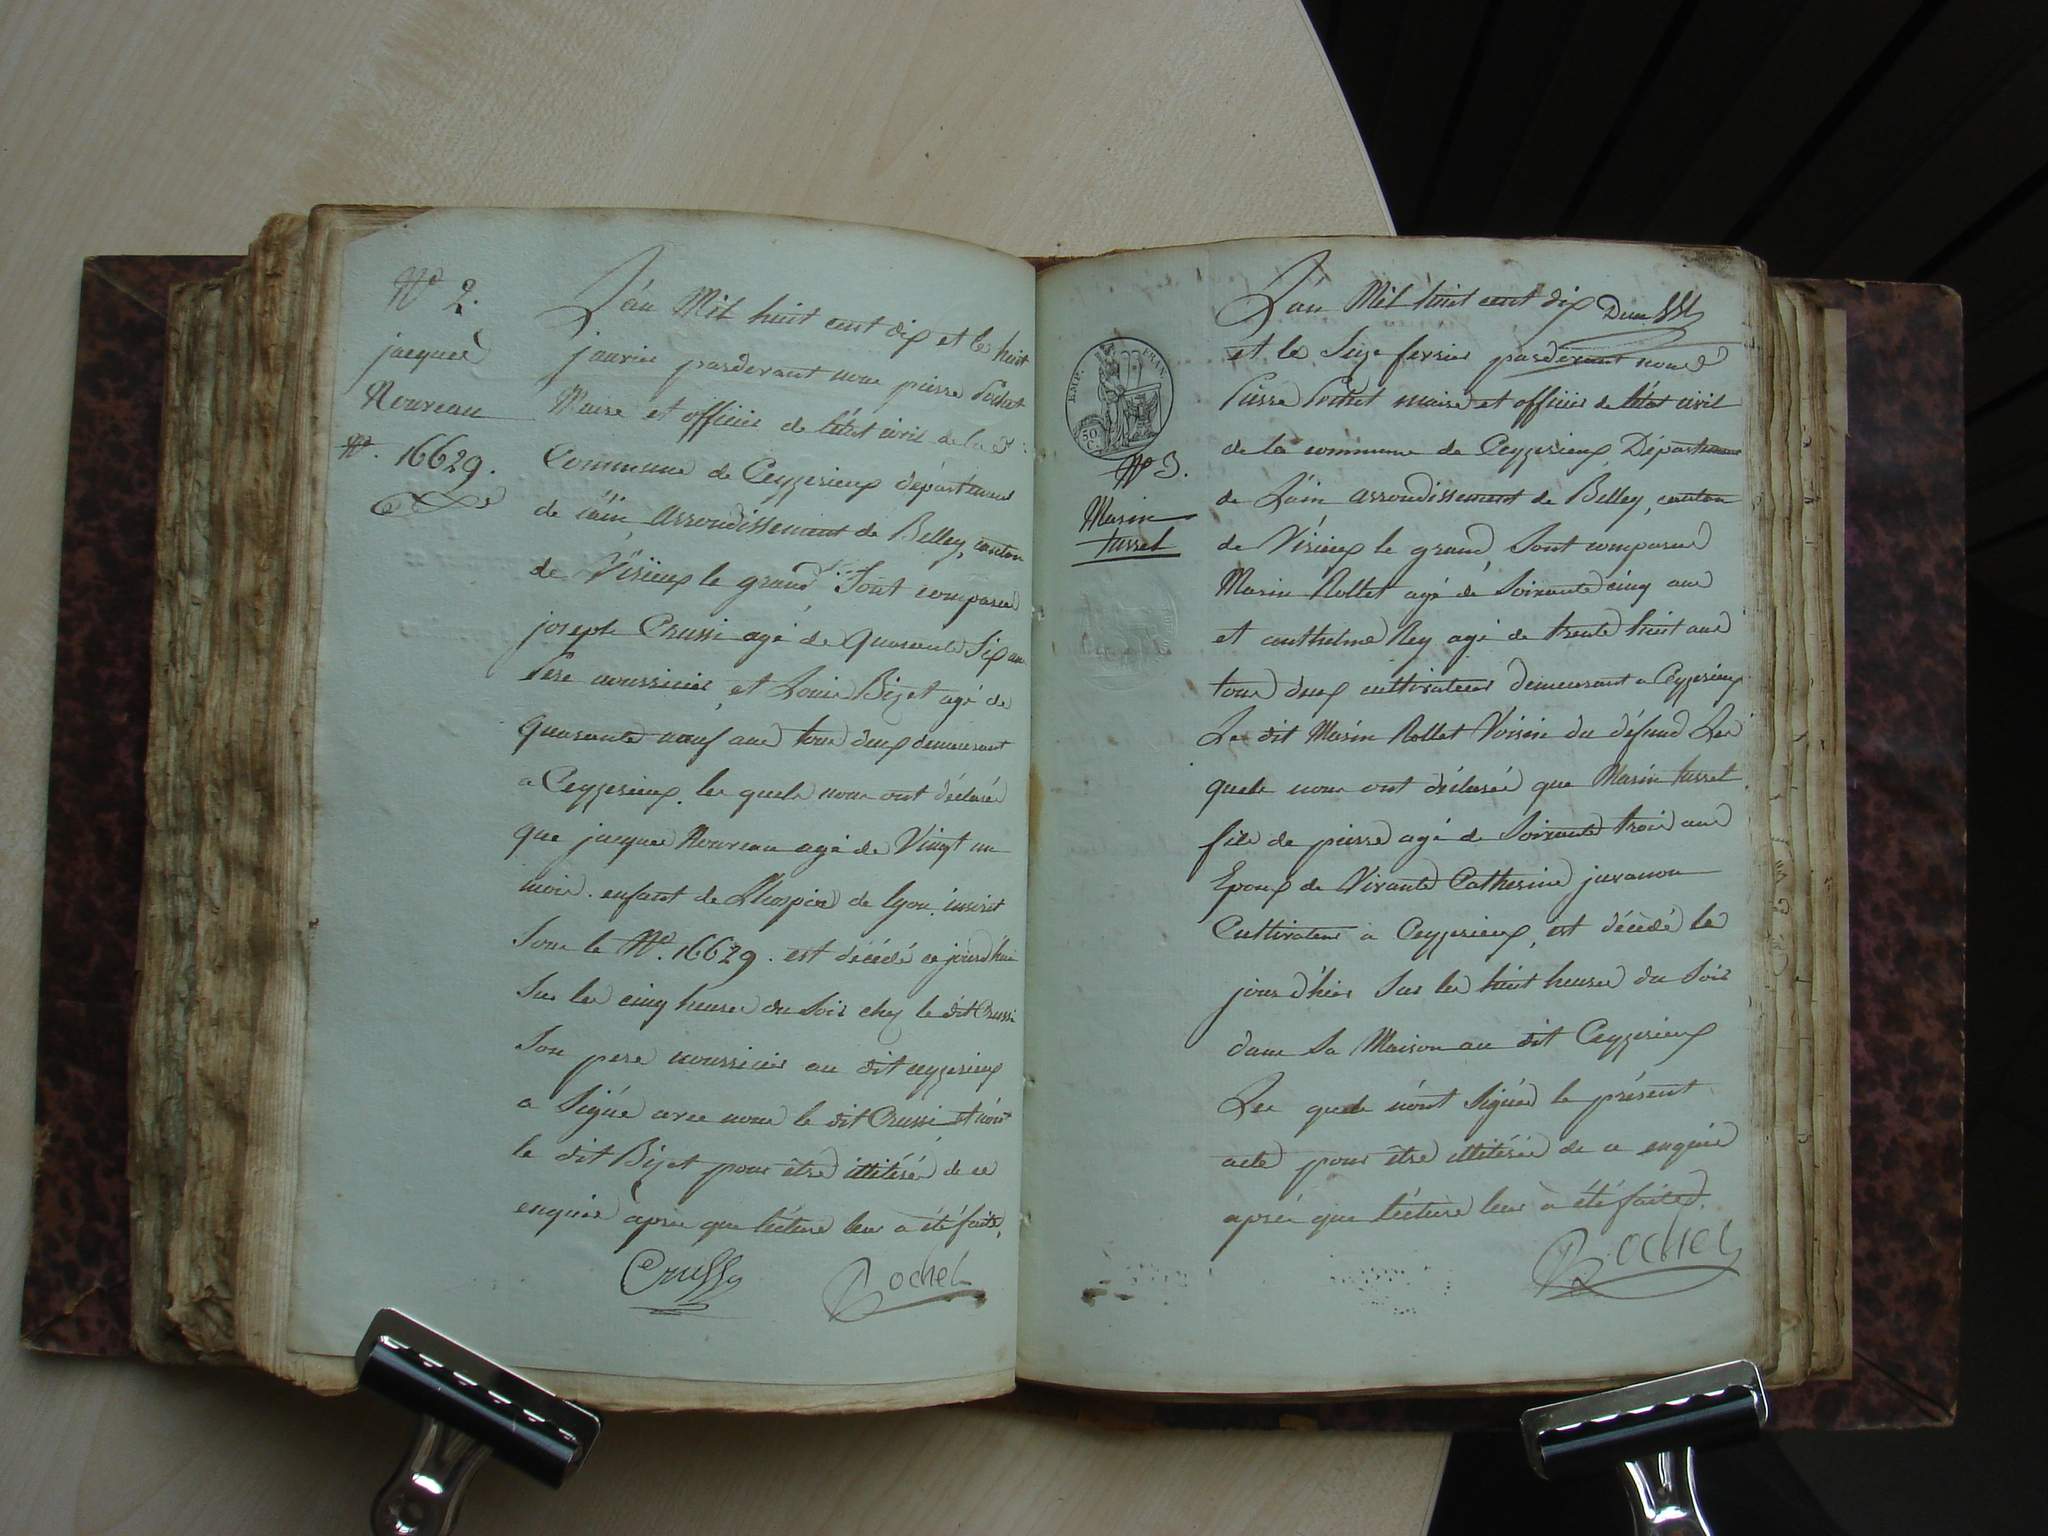 N° 2.
jacques
Nouveau
N°. 16629.
L'an Mil huit cent dix et le huit
janvier pardevant nous pierre Pochet
Maire et officier de l'état civil de la
Commune de Ceyzerieux département
de l'ain, arrondissement de Belley, canton
de Virieux le grand, Sont comparus
joseph Crussi agé de quarante Six ans
Pere nourricier, et Louis Bizet agé de
quarante neuf ans tous deux demeurant
a Ceyzerieux, les quels nous ont déclaré
que jacques Nouveau agé de Vingt un
mois. enfant de L'hospice de lyon. inscrit
Sous le N°. 16629. est décédé ce jourd'hui
Sur les cinq heures du Soir chez le dit Crussi
Son pere nourricier au dit ceyzerieux
a Signé avec nous le dit Crussi et non
le dit Bizet pour être illitéré de ce
enquis après que lécture leur a été faite,
Crussy Pochet
EMP. FRAN.
50 C.
N° 3.
Marin
tusset
L'an Mil huit cent dix
et le Seize fevrier pardevant nous
Pierre Pochet maire et officier de l'état civil
de la commune de Ceyzerieux Département
de L'ain arrondissement de Belley, canton
de Virieux le grand, Sont comparus
Marin Rollet agé de Soixante cinq ans
et anthelme Rey agé de trente huit ans
tous deux cultivateurs demeurant a Ceyzerieux
Le dit Marin Rollet Voisin du défund Les
quels nous ont déclaré que Marin tusset
fils de pierre agé de Soixante trois ans
Epoux de Vivante Catherine juvanon
Cultivateur a Ceyzerieux, est décédé le
jour d'hier Sur les huit heures du Soir
dans Sa Maison au dit Ceyzerieux
Les quels n'ont Signés le présent
acte pour être illitérés de ce enquis
après que lécture leur à été faite.
Pochet